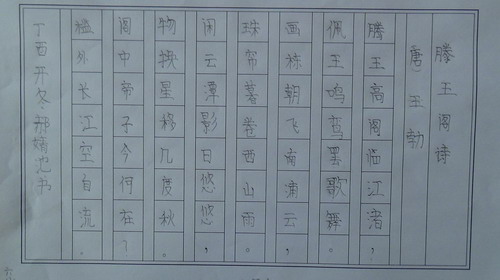 滕王阁诗
唐、王勃
滕王高阁临江渚,
佩玉鸣鸾罢歌舞。
画栋朝飞南浦云,
珠帘暮卷西山雨。
闲云潭影日悠悠,
物换星移几度秋。
阁中帝子今何在?
槛外长江空自流.
丁酉开冬.郝婧池书